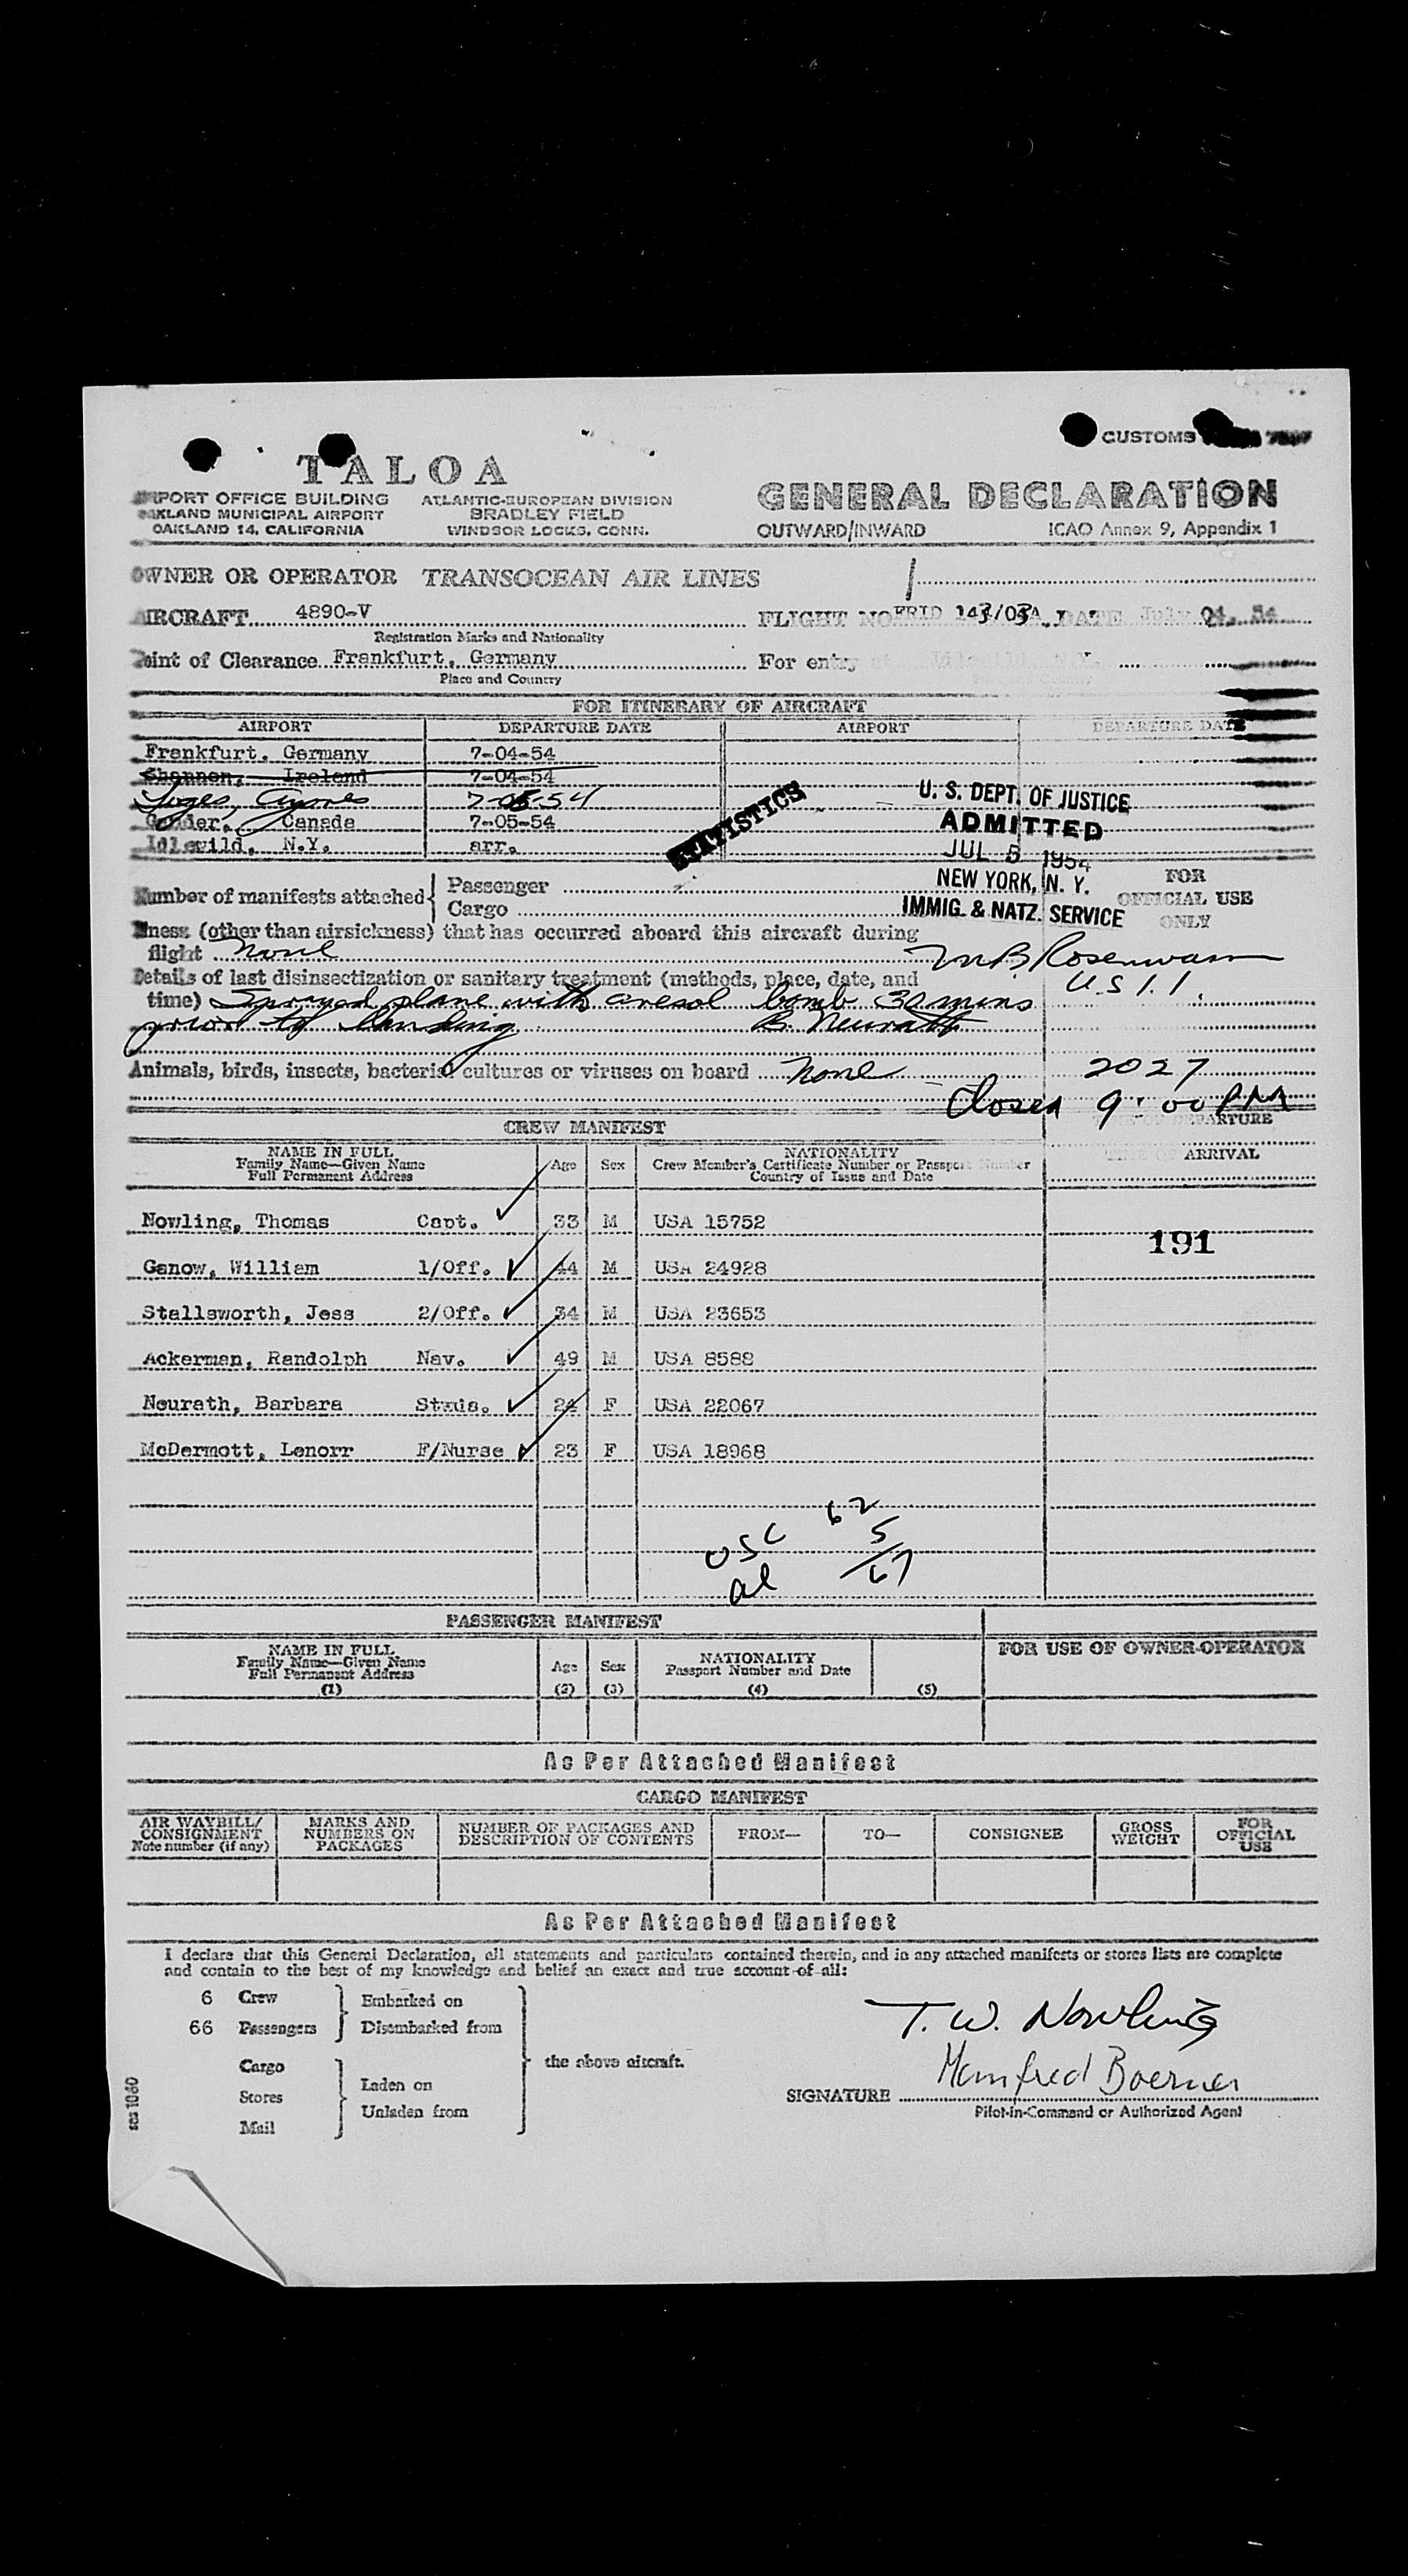 CUSTOMS
TALOA
AIRPORT OFFICE BUILDING
OAKLAND MUNICIPAL AIRPORT
OAKLAND 14, CALIFORNIA
ATLANTIC-EUROPEAN DIVISION
BRADLEY FIELD
WINDSOR LOCKS, CONN.
GENERAL DECLARATION
OUTWARD/INWARD ICAO Annex 9, Appendix 1
OWNER OR OPERATOR TRANSOCEAN AIR LINES
AIRCRAFT 4890-V FLIGHT NO DATE July 04, 54
Registration Marks and Nationality
Point of Clearance Frankfurt, Germany For entry at Idlewild, N.Y.
Place and Country
FOR ITINERARY OF AIRCRAFT
AIRPORT DEPARTURE DATE AIRPORT DEPARTURE DATE
Frankfurt, Germany 7-04-54
Shannon, Ireland 7-04-54
7-05-54
Gander, Canada 7-05-54
Idlewild, N.Y. arr.
STATISTICS
U. S. DEPT. OF JUSTICE
ADMITTED
JUL 5 1954
NEW YORK, N. Y.
IMMIG. & NATZ. SERVICE
Number of manifests attached Passenger
Cargo
FOR
OFFICIAL USE
ONLY
Illness (other than airsickness) that has occurred aboard this aircraft during
flight None
U.S.I.I.
Details of last disinsectization or sanitary treatment (methods, place, date, and
time) Sprayed plane with aresol bomb 30 mins
prior to landing B. Neurath
Animals, birds, insects, bacterial cultures or viruses on board None
2027
Closed 9:00 PM
CREW MANIFEST
TIME OF DEPARTURE
TIME OF ARRIVAL
NAME IN FULL
Family Name—Given Name
Full Permanent Address
Age Sex
NATIONALITY
Crew Member's Certificate Number or Passport Number
Country of Issue and Date
Nowling, Thomas Capt. 33 M USA 15752
191
Ganow, William 1/Off. 44 M USA 24928
Stallsworth, Jess 2/Off. 34 M USA 23653
Ackerman, Randolph Nav. 49 M USA 8588
Neurath, Barbara 24 F USA 22067
McDermott, Lenorr F/Nurse 23 F USA 18968
USC 62
al 5
67
PASSENGER MANIFEST
NAME IN FULL
Family Name—Given Name
Full Permanent Address
(1)
Age
(2)
Sex
(3)
NATIONALITY
Passport Number and Date
(4)
(5)
FOR USE OF OWNER-OPERATOR
As Per Attached Manifest
CARGO MANIFEST
AIR WAYBILL/
CONSIGNMENT
Note number (if any)
MARKS AND
NUMBERS ON
PACKAGES
NUMBER OF PACKAGES AND
DESCRIPTION OF CONTENTS
FROM—
TO—
CONSIGNEE
GROSS
WEIGHT
FOR
OFFICIAL
USE
As Per Attached Manifest
I declare that this General Declaration, all statements and particulars contained therein, and in any attached manifests or stores lists are complete
and contain to the best of my knowledge and belief an exact and true account of all:
6 Crew Embarked on
66 Passengers Disembarked from
the above aircraft.
Cargo
Stores
Mail
Laden on
Unladen from
T. W. Nowling
Manfred Boerner
SIGNATURE
Pilot-in-Command or Authorized Agent